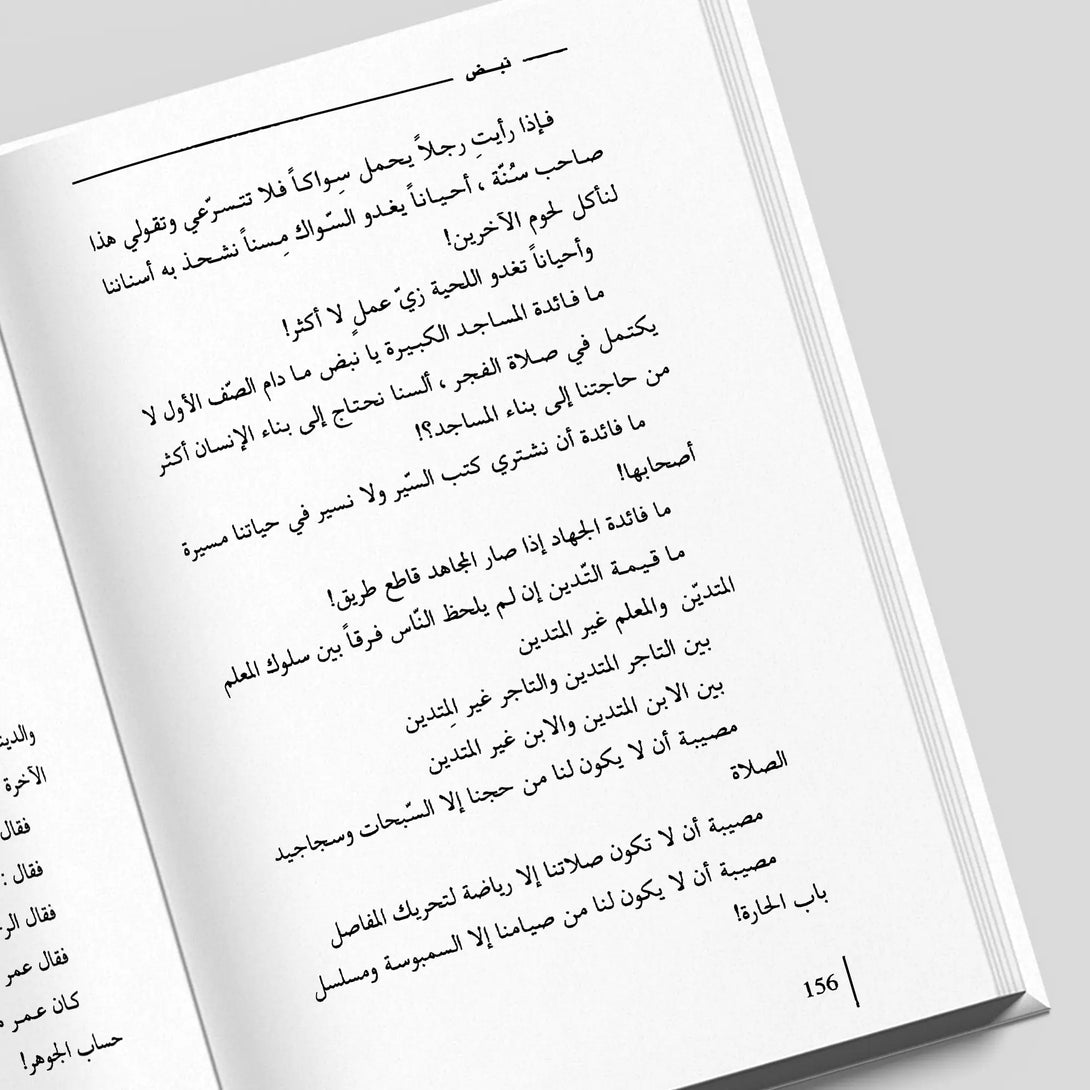 نبـض
فإذا رأيتِ رجلاً يحمل سِواكاً فلا تتسرّعي وتقولي هذا
صاحب سُنّة ، أحياناً يغدو السّواك مِسناً نشحذ به أسناننا
لنأكل لحوم الآخرين!
وأحياناً تغدو اللحية زيّ عملٍ لا أكثر!
ما فائدة المساجد الكبيرة يا نبض ما دام الصّف الأول لا
يكتمل في صلاة الفجر ، ألسنا نحتاج إلى بناء الإنسان أكثر
من حاجتنا إلى بناء المساجد؟!
ما فائدة أن نشتري كتب السيّر ولا نسير في حياتنا مسيرة
أصحابها!
ما فائدة الجهاد إذا صار المجاهد قاطع طريق!
ما قيمة التّدين إن لم يلحظ النّاس فرقاً بين سلوك المعلم
المتديّن والمعلم غير المتدين
بين التاجر المتدين والتاجر غير المِتدين
بين الابن المتدين والابن غير المتدين
مصيبة أن لا يكون لنا من حجنا إلا السّبحات وسجاجيد
الصلاة
مصيبة أن لا تكون صلاتنا إلا رياضة لتحريك المفاصل
مصيبة أن لا يكون لنا من صيامنا إلا السمبوسة ومسلسل
باب الحارة!
156
الآخرة
فقال
فقال :
فقال
فقال عمر
كان عمر
حساب الجوهر!